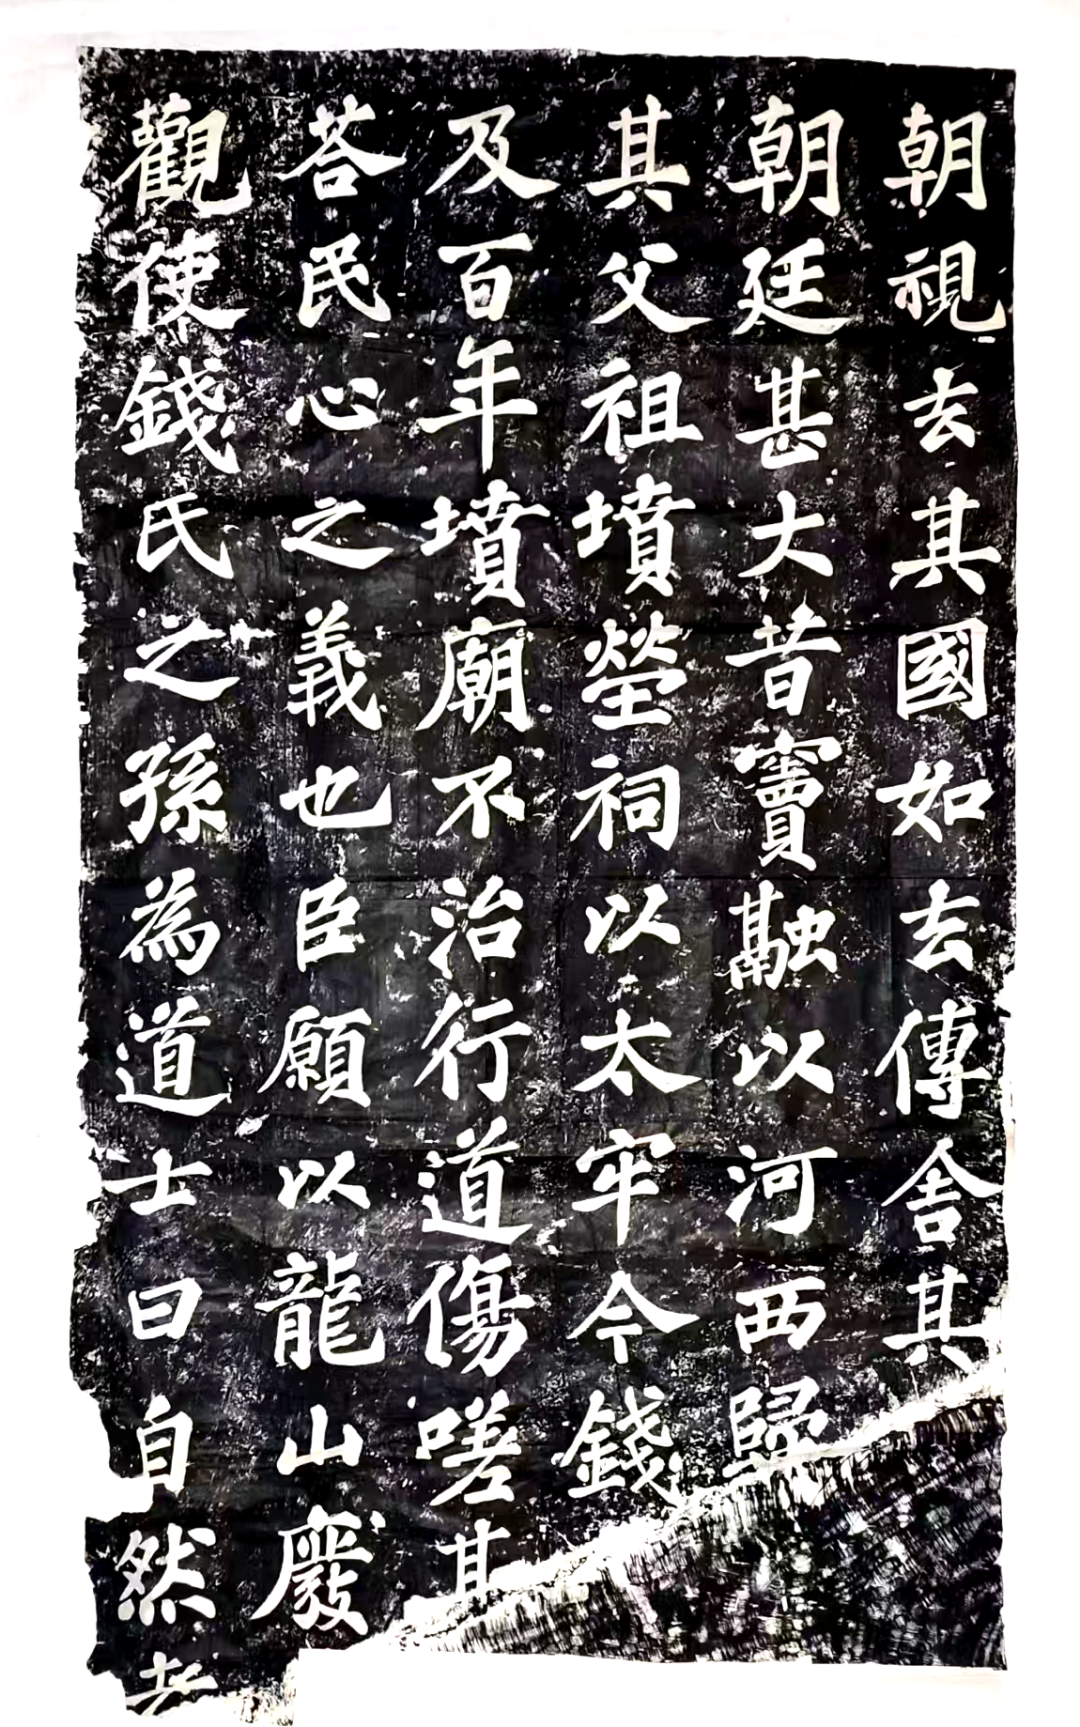 朝視去其國如去傳舍其
朝廷甚大昔竇融以河西歸
其父祖墳塋祠以太牢今錢
及百年墳廟不治行道傷嗟其
荅民心之義也臣願以龍山廢
觀使錢氏之孫為道士曰自然者